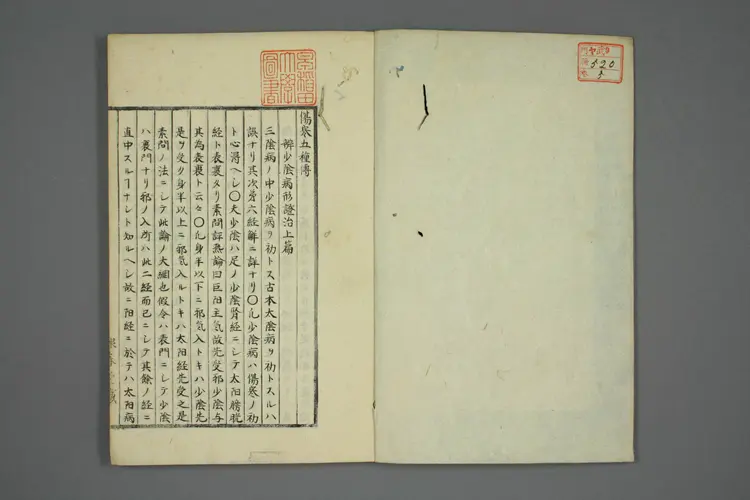 傷寒五種傳
辨少陰病形證治上篇
三陰病ノ中少陰病ヲ初トス古本太陰病ヲ初トスルハ
誤ナリ其次第六経解ニ詳ナリ〇凡少陰病ハ傷寒ノ初
ト心得ヘシ〇夫少陰ハ足ノ少陰腎経ニシテ太阳膀胱
経ト表裏タリ素問評熱論曰巨阳主氣故先受邪少陰与
其為表裏ト云々〇凡身半以下ニ邪気入トキハ少陰先
是ヲ受ク身半以上ニ邪気入ルトキハ太阳経先受之是
素問ノ法ニシテ此論ノ大綱也假令ハ表門ニシテ少陰
ハ裏門ナリ邪ノ入所ハ此二経而已ニシテ其餘ノ経ニ
直中スルヿナシト知ルヘシ故ニ阳経ニ於テハ太阳病
520
5